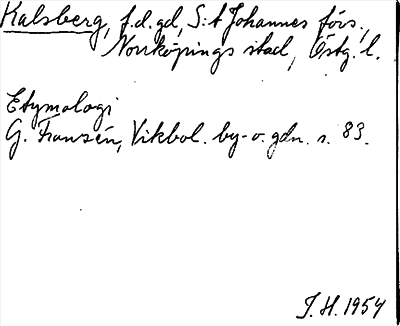 Kalsberg, f.d. gd, S:t Johannes förs.,
Norrköpings stad, Östg. l.
Etymologi
G. Franzén, Vikbol. by- o. gdn. s. 83.
J. H. 1954